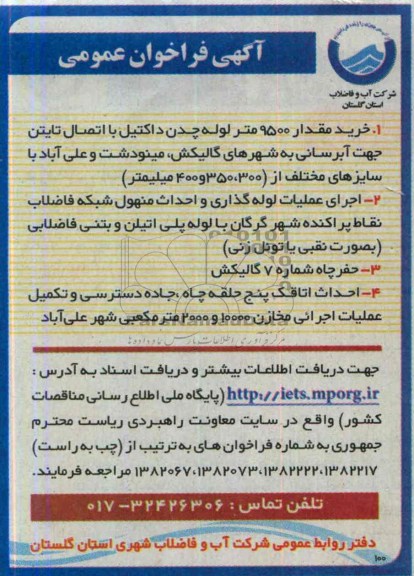 آگهی فراخوان عمومی
شرکت آب و فاضلاب
استان گلستان
۱. خرید مقدار ۹۵۰۰ متر لوله چدن داکتیل با اتصال تایتن
جهت آبرسانی به شهرهای گالیکش، مینودشت و علی آباد با
سایزهای مختلف از (۳۵۰،۳۰۰و۴۰۰ میلیمتر)
۲- اجرای عملیات لوله گذاری و احداث منهول شبکه فاضلاب
نقاط پراکنده شهر گرگان با لوله پلی اتیلن و بتنی فاضلابی
(بصورت نقبی یا تونل زنی)
۳- حفر چاه شماره ۷ گالیکش
۴- احداث اتاقک پنج حلقه چاه ،جاده دسترسی و تکمیل
عملیات اجرائی مخازن ۱۰۰۰۰ و ۲۰۰۰ متر مکعبی شهر علی‌آباد
جهت دریافت اطلاعات بیشتر و دریافت اسناد به آدرس :
http://iets.mporg.ir (پایگاه ملی اطلاع رسانی مناقصات
کشور) واقع در سایت معاونت راهبردی ریاست محترم
جمهوری به شماره فراخوان های به ترتیب از (چپ به راست)
۱۳۸۲۰۶۷،۱۳۸۲۰۷۳،۱۳۸۲۲۲۲،۱۳۸۲۲۱۷ مراجعه فرمایند.
تلفن تماس : ۳۲۴۲۶۳۰۶-۰۱۷
دفتر روابط عمومی شرکت آب و فاضلاب شهری استان گلستان
۱۰۰